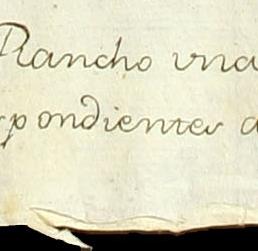 Rancho una
spondientes a